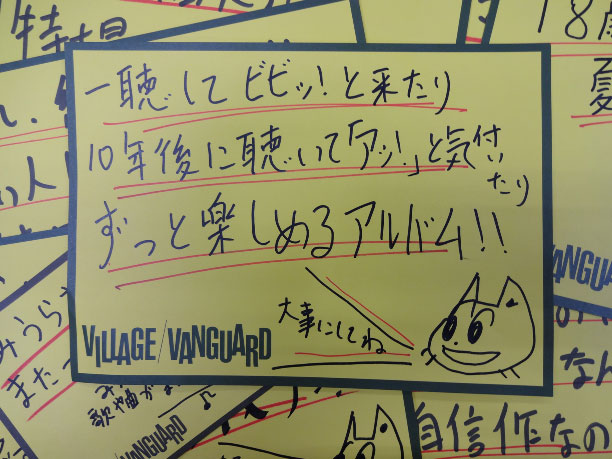 一聴してビビッ!と来たり
10年後に聴いて「アッ!」と気付いたり
ずっと楽しめるアルバム!!
大事にしてね
VILLAGE/VANGUARD
みうら
また
歌や曲が
VANGUARD
18歳
夏
VANGUARD
なん
自信作なの